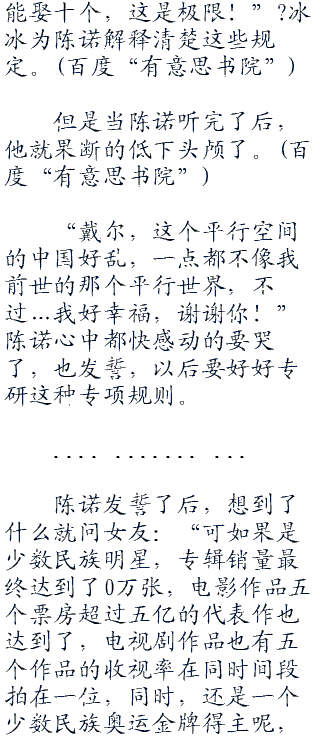 能娶十个，这是极限！”?冰
冰为陈诺解释清楚这些规
定。(百度“有意思书院”)
但是当陈诺听完了后，
他就果断的低下头颅了。(百
度“有意思书院”)
“戴尔，这个平行空间
的中国好乱，一点都不像我
前世的那个平行世界，不
过…我好幸福，谢谢你！”
陈诺心中都快感动的要哭
了，也发誓，以后要好好专
研这种专项规则。
.... ....... ...
陈诺发誓了后，想到了
什么就问女友：“可如果是
少数民族明星，专辑销量最
终达到了0万张，电影作品五
个票房超过五亿的代表作也
达到了，电视剧作品也有五
个作品的收视率在同时间段
拍在一位，同时，还是一个
少数民族奥运金牌得主呢，